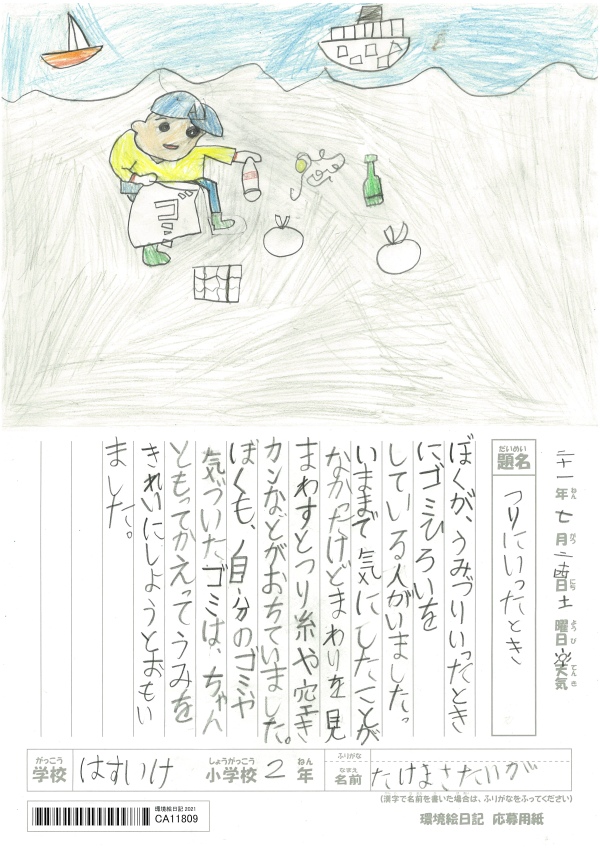 ゴミ
二十一年ねん 七月がつ 日にち 土曜日ようび 天気てんき
題名だいめい つりにいったとき
ぼくが、うみづりいったとき
にゴミひろいを
している人がいました。
いままで気にしたことが
なかったけどまわりを見
まわすとつり糸や空き
カンなどがおちていました。
ぼくも、自分のゴミや
気づいたゴミは、ちゃん
ともってかえってうみを
きれいにしようとおもい
ました。
がっこう しょうがっこう ねん ふりがな
学校 はすいけ 小学校 2 年 名前なまえ たけまさたいが
(漢字で名前を書いた場合は、ふりがなをふってください)
環境絵日記 2021
CA11809
環境絵日記 応募用紙